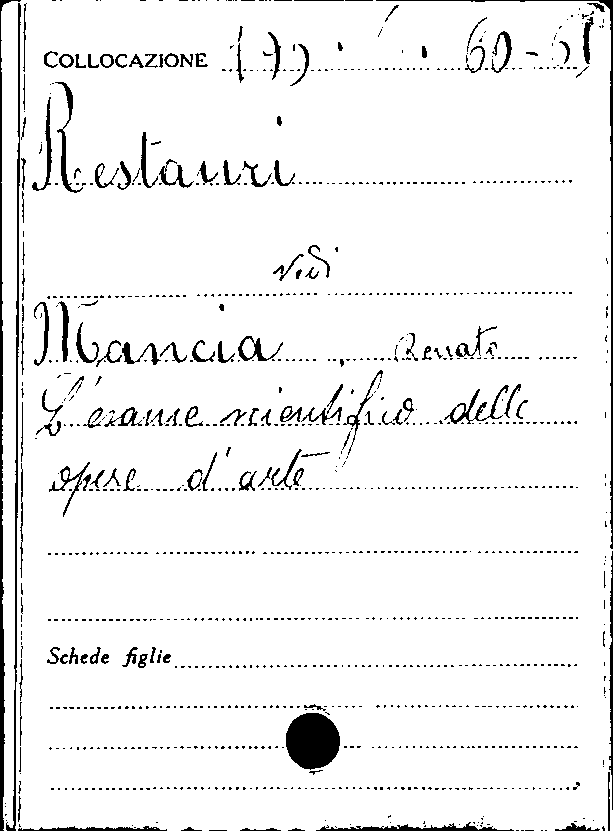 COLLOCAZIONE 60-61
Restauri
vedi
Mancia, Renato
L'esame scientifico delle
opere d'arte
Schede figlie